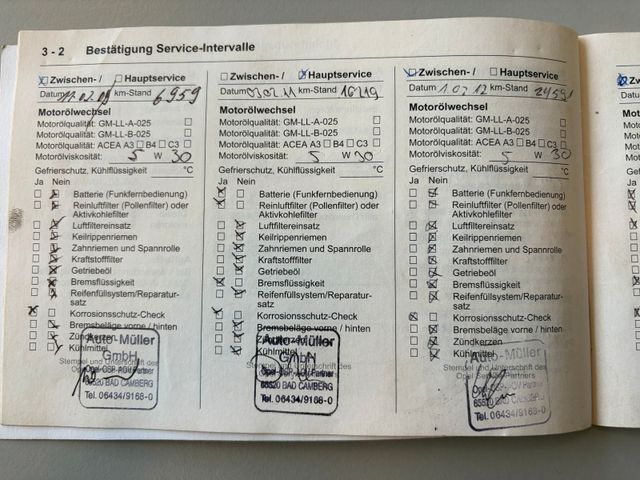 3 - 2 Bestätigung Service-Intervalle
Zwischen- / Hauptservice
Datum 11.02.09 km-Stand 6959
Motorölwechsel
Motorölqualität: GM-LL-A-025
Motorölqualität: GM-LL-B-025
Motorölqualität: ACEA A3 B4 C3
Motorölviskosität: 5 W 30
Gefrierschutz, Kühlflüssigkeit °C
Ja Nein
Batterie (Funkfernbedienung)
Reinluftfilter (Pollenfilter) oder
Aktivkohlefilter
Luftfiltereinsatz
Keilrippenriemen
Zahnriemen und Spannrolle
Kraftstofffilter
Getriebeöl
Bremsflüssigkeit
Reifenfüllsystem/Reparatur-
satz
Korrosionsschutz-Check
Bremsbeläge vorne / hinten
Zündkerzen
Kühlmittel
Stempel und Unterschrift des
Auto-Müller
GmbH
65520 BAD CAMBERG
Tel. 06434/9168-0
Zwischen- / Hauptservice
Datum km-Stand 16219
Motorölwechsel
Motorölqualität: GM-LL-A-025
Motorölqualität: GM-LL-B-025
Motorölqualität: ACEA A3 B4 C3
Motorölviskosität: 5 W 30
Gefrierschutz, Kühlflüssigkeit °C
Ja Nein
Batterie (Funkfernbedienung)
Reinluftfilter (Pollenfilter) oder
Aktivkohlefilter
Luftfiltereinsatz
Keilrippenriemen
Zahnriemen und Spannrolle
Kraftstofffilter
Getriebeöl
Bremsflüssigkeit
Reifenfüllsystem/Reparatur-
satz
Korrosionsschutz-Check
Bremsbeläge vorne / hinten
Kühlmittel
Auto-Müller
GmbH
65520 BAD CAMBERG
Tel. 06434/9168-0
Zwischen- / Hauptservice
Datum 1.02.12 km-Stand
Motorölwechsel
Motorölqualität: GM-LL-A-025
Motorölqualität: GM-LL-B-025
Motorölqualität: ACEA A3 B4 C3
Motorölviskosität: 5 W 30
Gefrierschutz, Kühlflüssigkeit °C
Ja Nein
Batterie (Funkfernbedienung)
Reinluftfilter (Pollenfilter) oder
Aktivkohlefilter
Luftfiltereinsatz
Keilrippenriemen
Zahnriemen und Spannrolle
Kraftstofffilter
Getriebeöl
Bremsflüssigkeit
Reifenfüllsystem/Reparatur-
satz
Korrosionsschutz-Check
Bremsbeläge vorne / hinten
Zündkerzen
Kühlmittel
Stempel und Unterschrift des
Opel Service Partners
Auto-Müller
GmbH
65520 BAD CAMBERG
Tel. 06434/9168-0